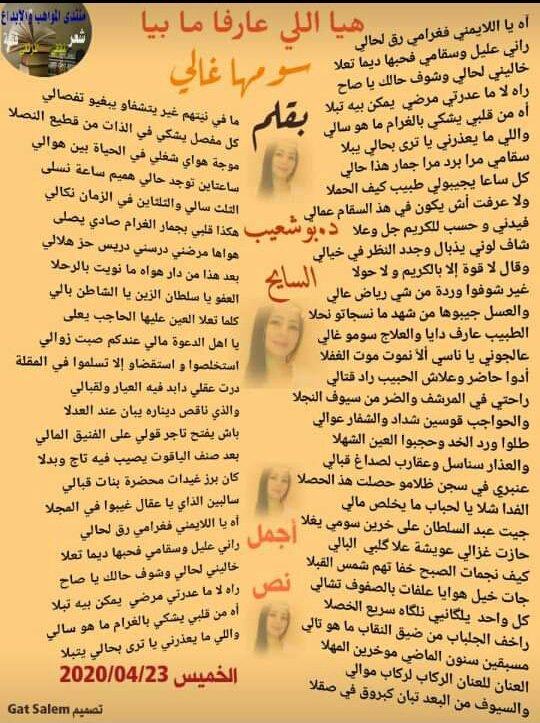 منتدى المواهب والإبداع
شعر
قصة
هيا اللي عارفا ما بيا
سومها غالي
بقلم
د.بوشعيب
السايح
أجمل
نص
آه يا اللايمني فغرامي رق لحالي
راني عليل وسقامي فحبها ديما تعلا
خاليني لحالي وشوف حالك يا صاح
راه لا ما عدرتي مرضي يمكن بيه تبلا
أه من قلبي يشكي بالغرام ما هو سالي
واللي ما يعذرني يا ترى بحالي يبلا
سقامي مرا برد مرا جمار هذا حالي
كل ساعا يجيبولي طبيب كيف الحملا
ولا عرفت أش يكون في هذ السقام عمالي
فيدني و حسب للكريم جل وعلا
شاف لوني يذبال وجدد النظر في خيالي
وقال لا قوة إلا بالكريم و لا حولا
غير شوفوا وردة من شي رياض عالي
والعسل جيبوها من شهد ما نسجاتو نحلا
الطبيب عارف دايا والعلاج سومو غالي
عالجوني يا ناسي ألا نموت موت الغفلا
أدوا حاضر وعلاش الحبيب راد قتالي
راحتي في المرشف والضر من سيوف النجلا
والحواجب قوسين شداد والشفار عوالي
طلوا ورد الخد وحجبوا العين الشهلا
والعذار سناسل وعقارب لصداغ قبالي
عنبري في سجن ظلامو حصلت هذ الحصلا
الفدا شلا يا لحباب ما يخلص مالي
جيت عبد السلطان على خرين سومي يغلا
حازت غزالي عويشة علا گلبي البالي
كيف نجمات الصبح خفا تهم شمس القبلا
جات خيل هوايا علفات بالصفوف تشالي
كل واحد يلگانيي نلگاه سريع الخصلا
راخف الجلباب من ضيق النقاب ما هو تالي
مسبقين سنون الماضي موخرين المهلا
العنان للعنان الركاب لركاب موالي
والسيوف من البعد تبان كبروق في صقلا
ما في نيتهم غير يتشفاو يبغيو تفصالي
كل مفصل يشكي في الذات من قطيع النصلا
موجة هواي شغلي في الحياة بين هوالي
ساعتاين توجد حالي هميم ساعة نسلى
التلت سالي والتلتاين في الزمان نكالي
هكذا قلبي بجمار الغرام صادي يصلى
هواها مرضني درسني دريس حز هلالي
بعد هذا من دار هواه ما نويت بالرحلا
العفو يا سلطان الزين يا الشاطن بالي
كلما تعلا العين عليها الحاجب يعلى
يا اهل الدعوة مالي عندكم صبت زوالي
استخلصوا و استقضاو إلا تسلموا في المقلة
درت عقلي دابد فيه العيار ولقبالي
والذي ناقص ديناره يبان عند العدلا
باش يفتح تاجر قولي على الفنيق المالي
بعد صنف الياقوت يصيب فيه تاج وبدلا
كان برز غيدات محضرة بنات قبالي
سالبين الذاي يا عقال غيبوا في المجلا
آه يا اللايمني فغرامي رق لحالي
راني عليل وسقامي فحبها ديما تعلا
خاليني لحالي وشوف حالك يا صاح
راه لا ما عدرتي مرضي يمكن بيه تبلا
أه من قلبي يشكي بالغرام ما هو سالي
واللي ما يعذرني يا ترى بحالي يتبلا
الخميس 2020/04/23
تصميم Gat Salem